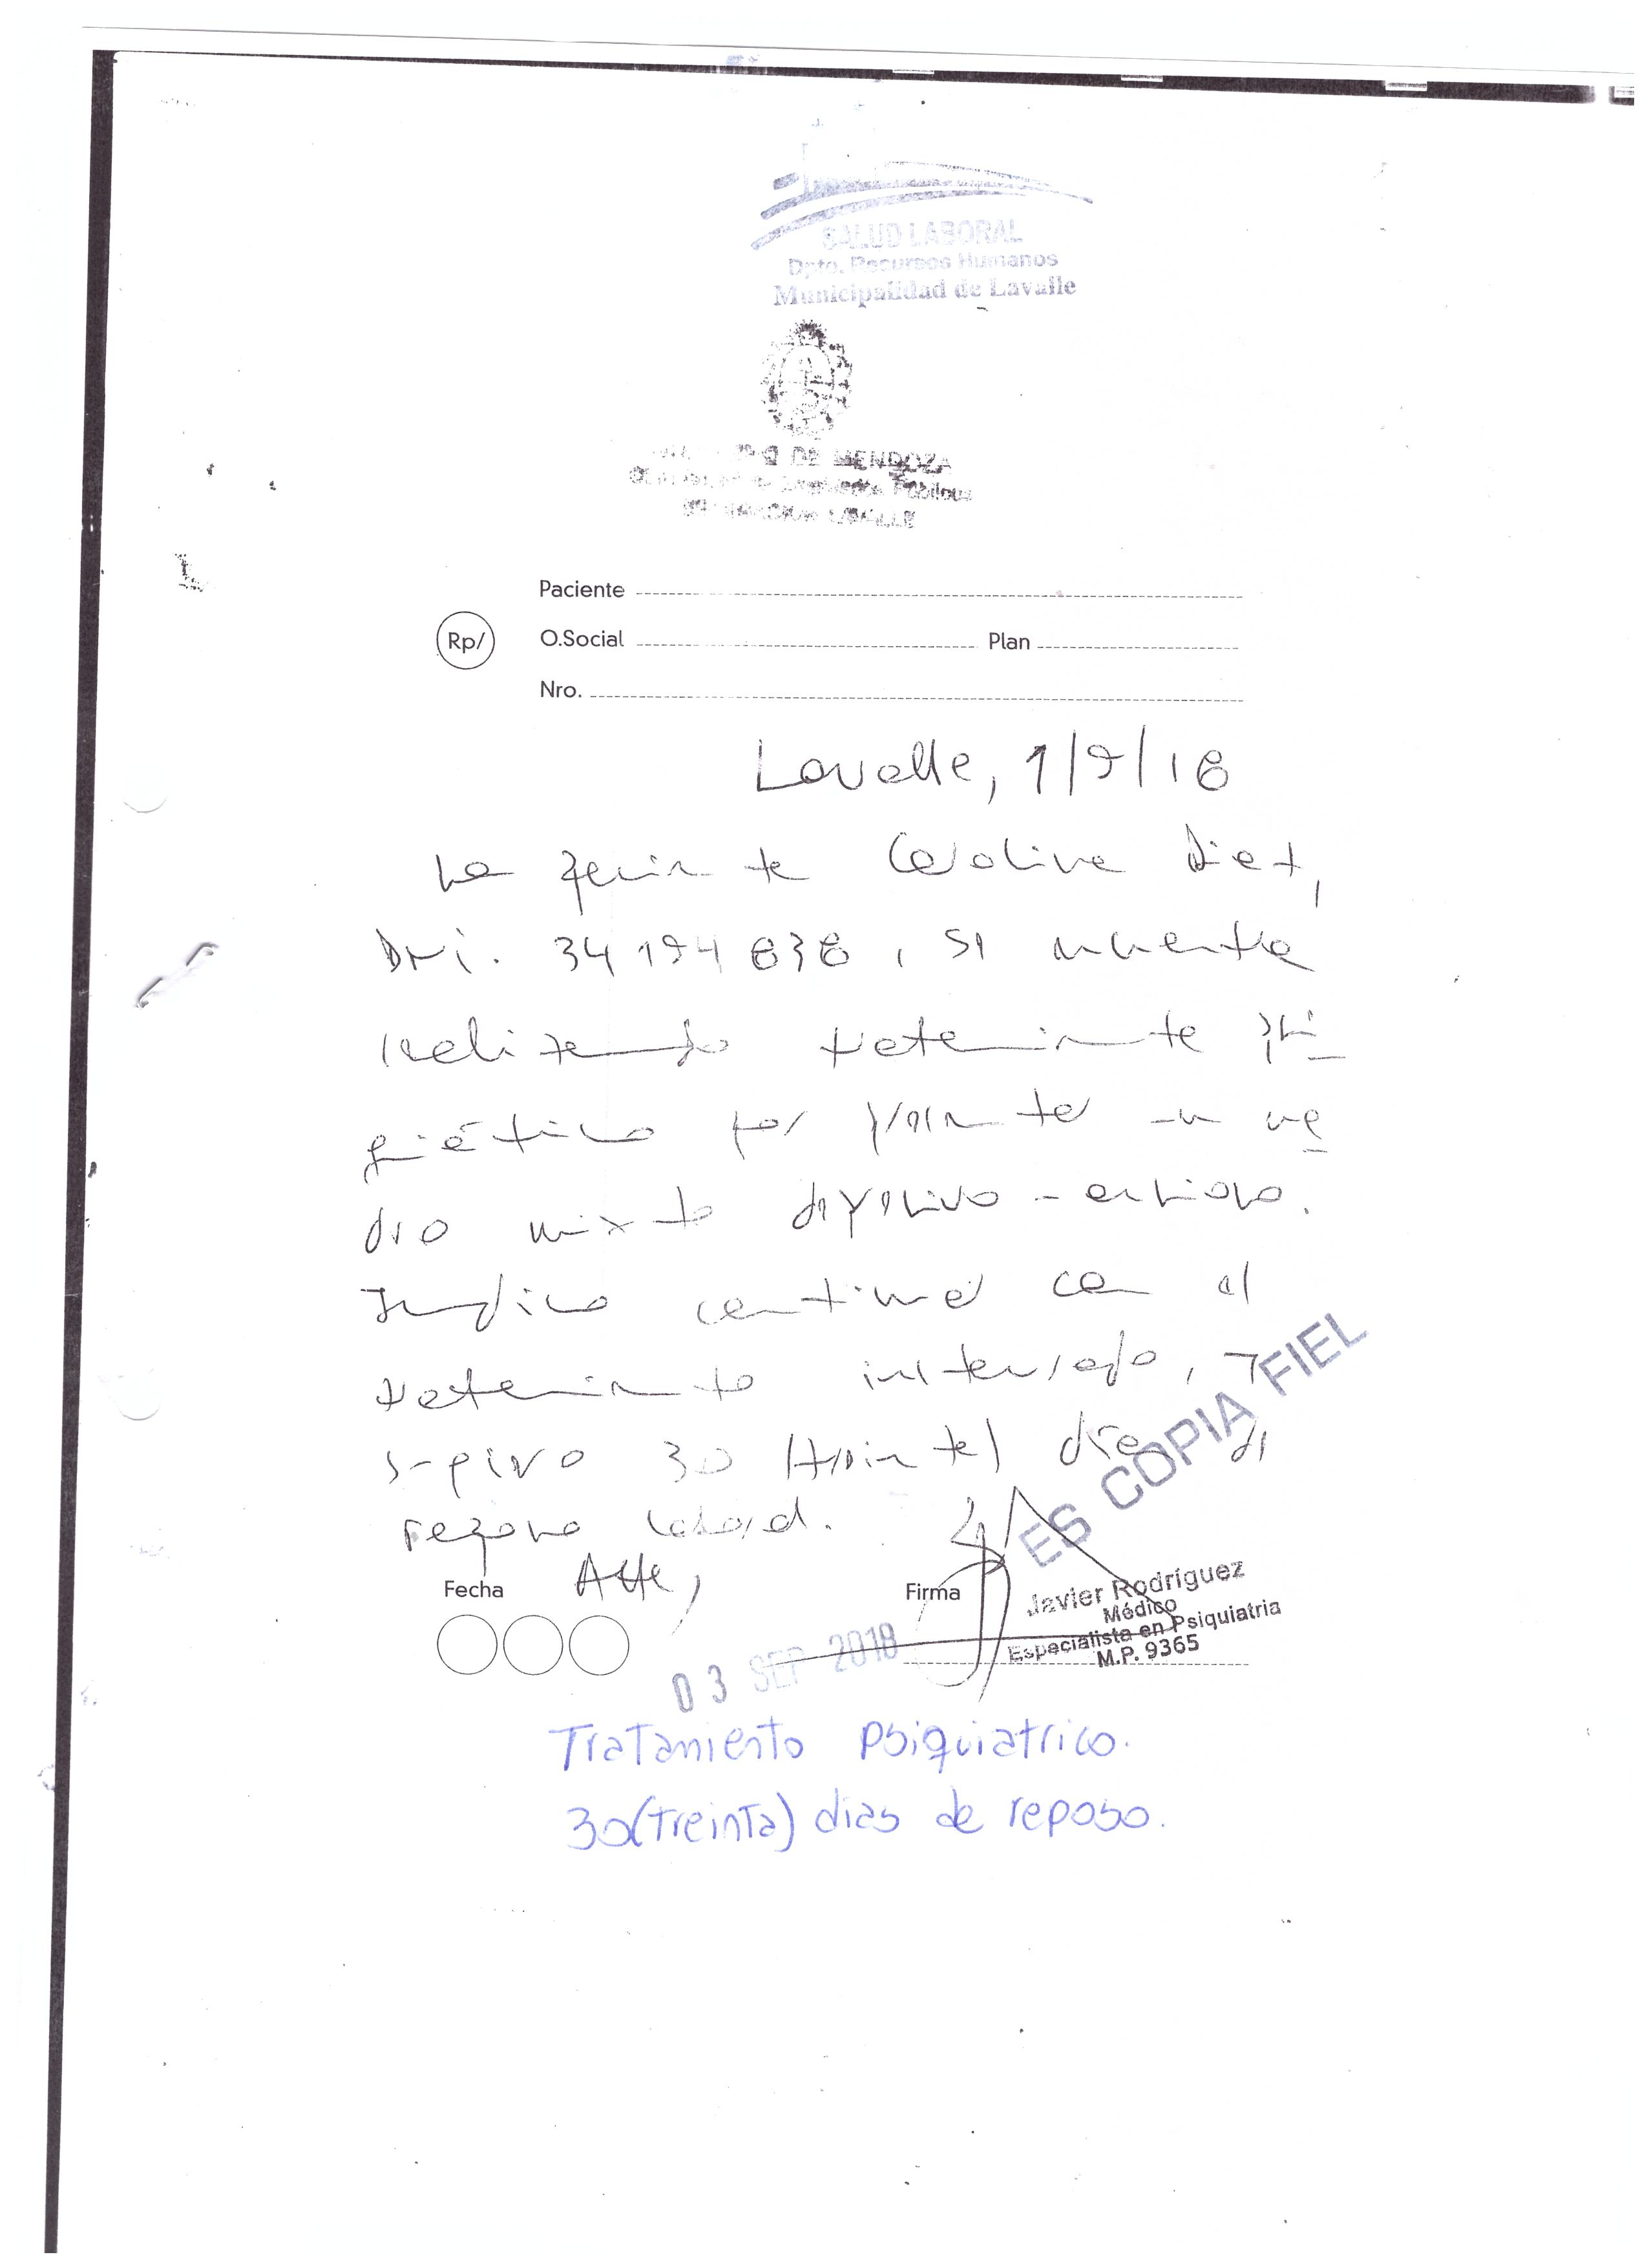 SALUD LABORAL
Dpto. Recursos Humanos
Municipalidad de Lavalle
DE MENDOZA
Paciente
Rp/
O.Social Plan
Nro.
Lavalle, 1/9/18
La paciente Carolina
DNI. 34194838, se encuentra
realizando tratamiento psi
quiátrico por presentar un cua
dro mixto depresivo-ansioso.
Indico continuar con el
tratamiento instaurado, y
sugiero 30 (treinta) días de
reposo laboral.
Atte,
Fecha
Firma
ES COPIA FIEL
Javier Rodríguez
Médico
Especialista en Psiquiatria
M.P. 9365
03 SEP 2018
Tratamiento Psiquiatrico.
30(treinta) dias de reposo.